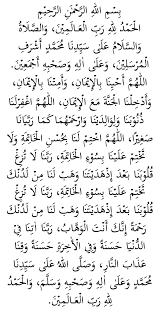 بِسْمِ اللّٰهِ الرَّحْمٰنِ الرَّحِيْمِ
الحَمْدُ لِلّٰهِ رَبِّ الْعَالَمِيْنَ، وَالصَّلَاةُ
وَالسَّلَامُ عَلَى سَيِّدِنَا مُحَمَّدٍ أَشْرَفِ
الْمُرْسَلِيْنَ، وَعَلَى آلِهِ وَصَحْبِهِ أَجْمَعِيْنَ.
اللّٰهُمَّ أَحْيِنَا بِالْإِيْمَانِ، وَأَمِتْنَا بِالْإِيْمَانِ،
وَأَدْخِلْنَا الْجَنَّةَ مَعَ الْإِيْمَانِ، اللّٰهُمَّ اغْفِرْلَنَا
ذُنُوْبَنَا وَلِوَالِدَيْنَا وَارْحَمْهُمَا كَمَا رَبَّيَانَا
صَغِيْرًا، اللّٰهُمَّ اخْتِمْ لَنَا بِحُسْنِ الْخَاتِمَةِ وَلَا
تَخْتِمْ عَلَيْنَا بِسُوْءِ الْخَاتِمَةِ، رَبَّنَا لَا تُزِغْ
قُلُوْبَنَا بَعْدَ إِذْهَدَيْتَنَا وَهَبْ لَنَا مِنْ لَدُنْكَ
تَخْتِمْ عَلَيْنَا بِسُوْءِ الْخَاتِمَةِ، رَبَّنَا لَا تُزِغْ
قُلُوْبَنَا بَعْدَ إِذْهَدَيْتَنَا وَهَبْ لَنَا مِنْ لَدُنْكَ
رَحْمَةً إِنَّكَ أَنْتَ الْوَهَّابُ، رَبَّنَا آتِنَا فِي
الدُّنْيَا حَسَنَةً وَفِي الْآخِرَةِ حَسَنَةً وَقِنَا
عَذَابَ النَّارِ، وَصَلَّى اللّٰهُ عَلَى سَيِّدِنَا
مُحَمَّدٍ وَعَلَى آلِهِ وَصَحْبِهِ وَسَلَّمَ، وَالْحَمْدُ
لِلّٰهِ رَبِّ الْعَالَمِيْنَ.